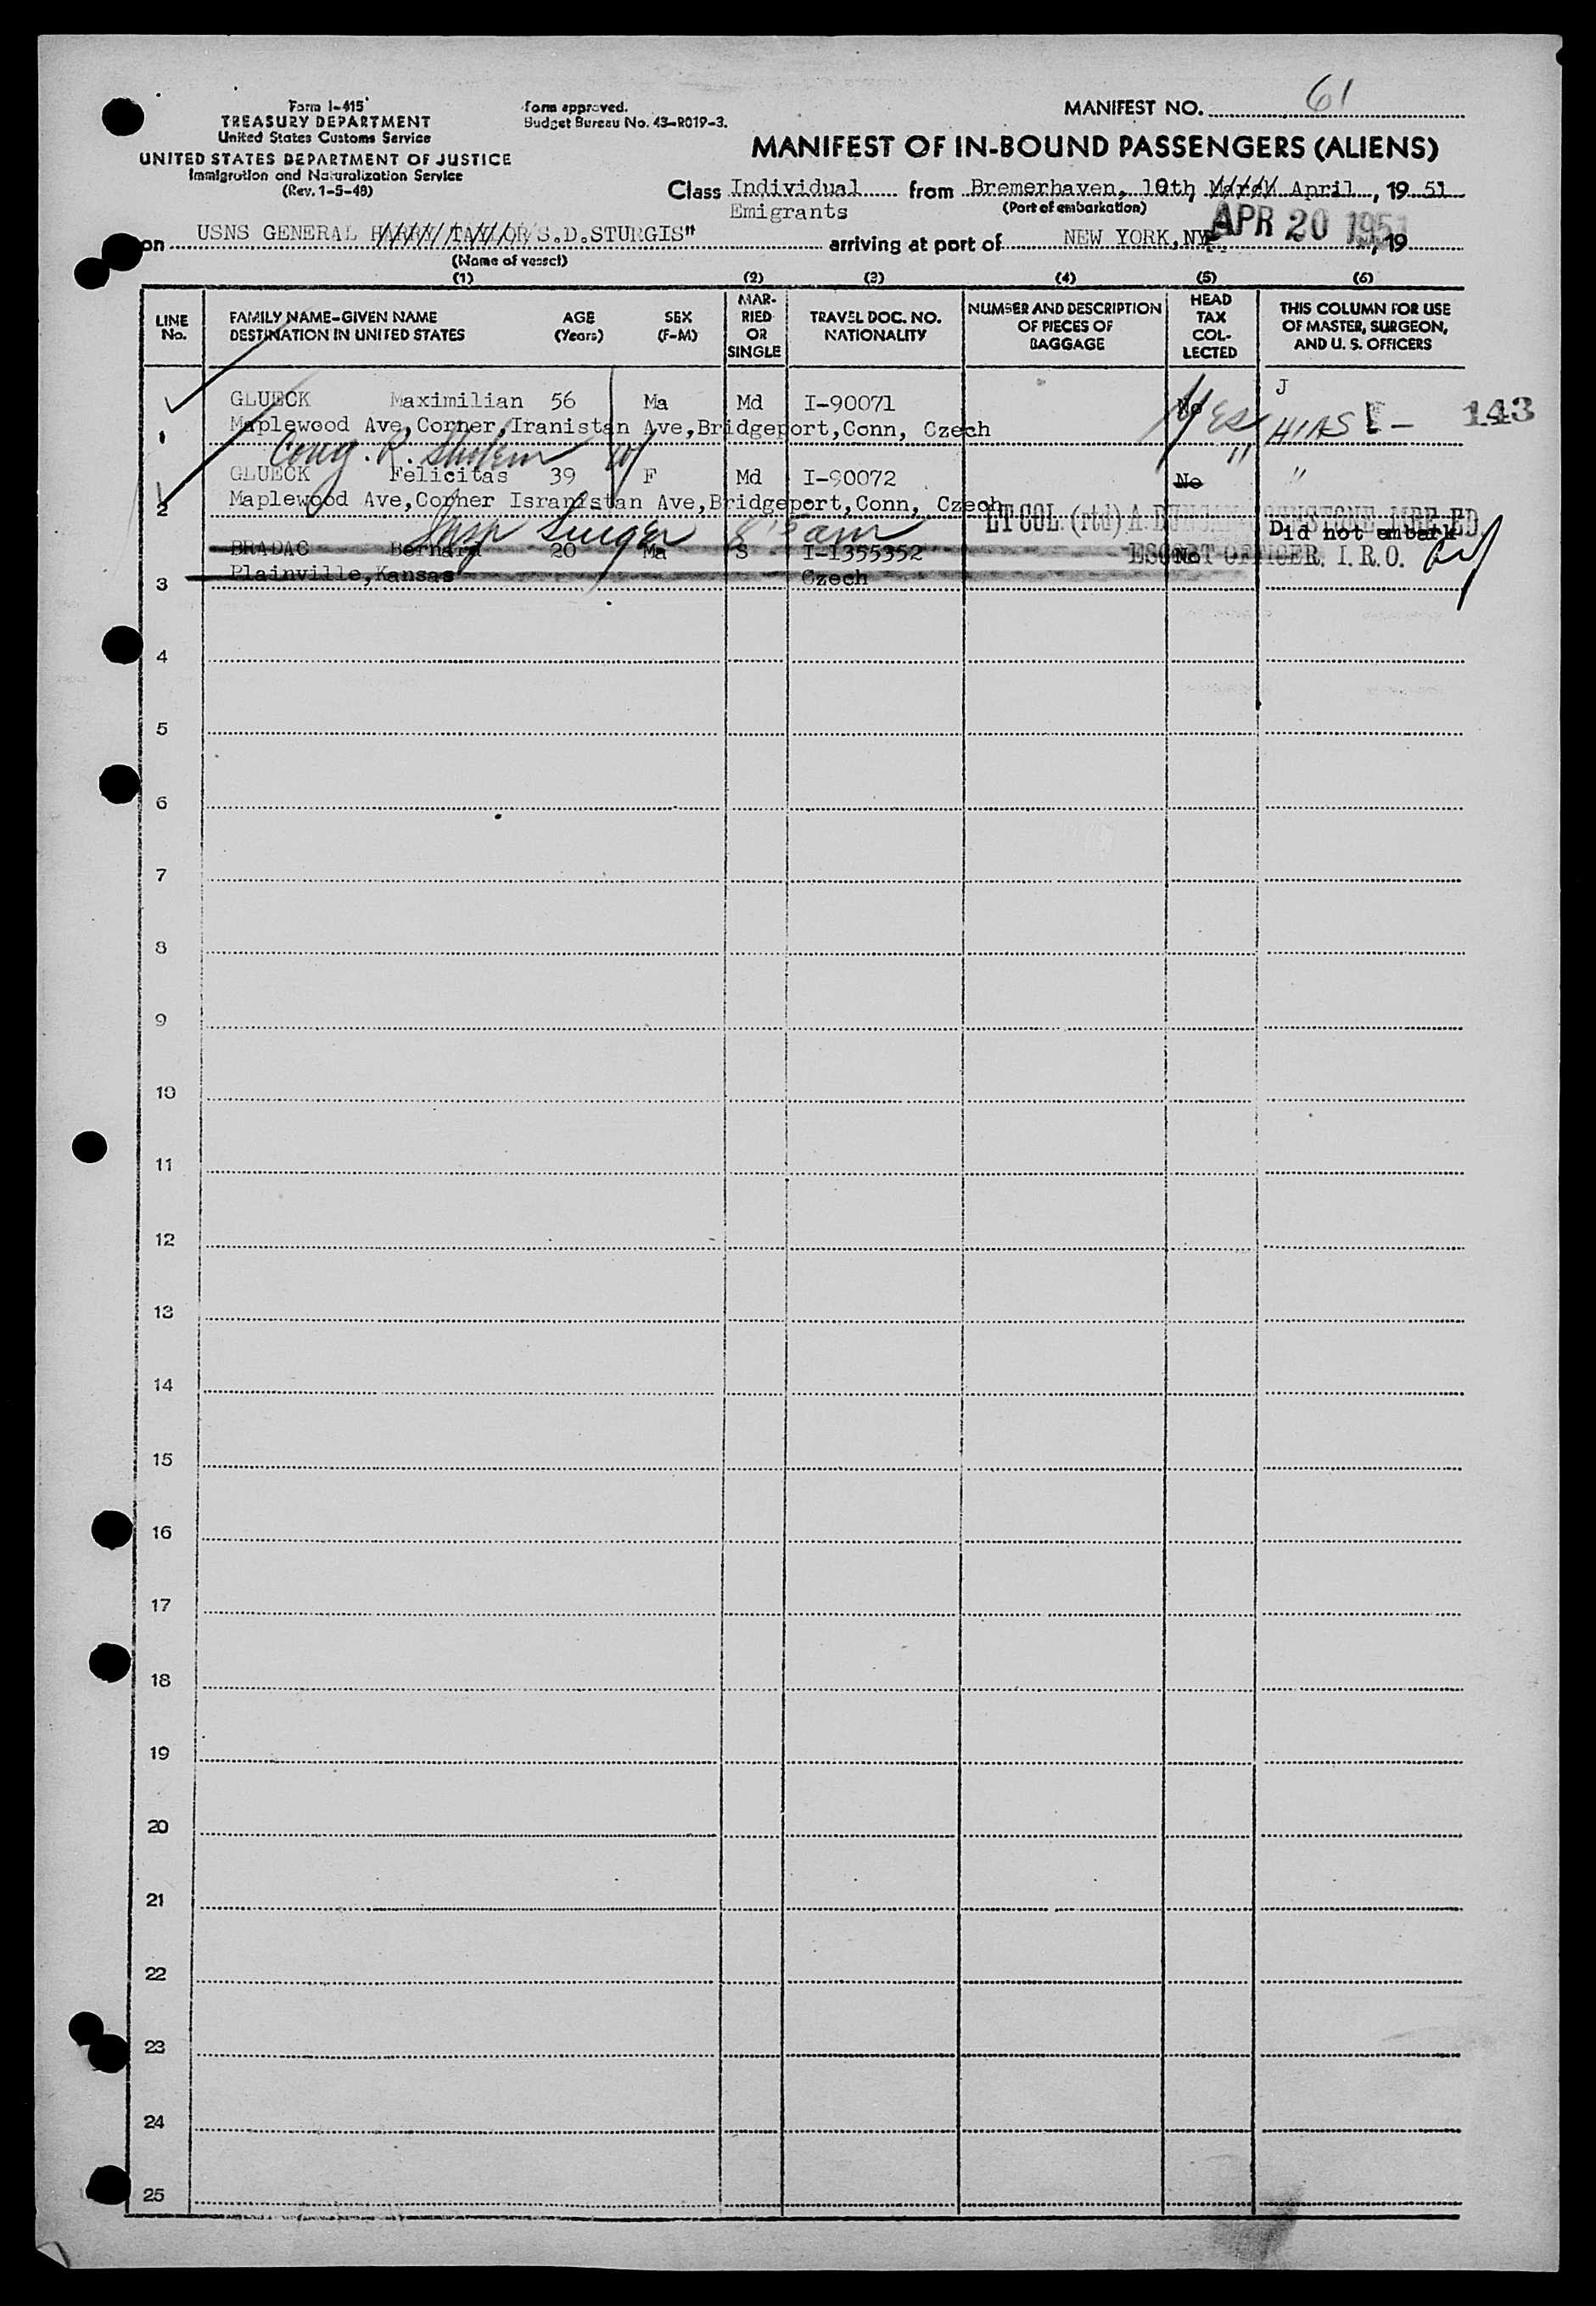 Form I-415
TREASURY DEPARTMENT
United States Customs Service
UNITED STATES DEPARTMENT OF JUSTICE
Immigration and Naturalization Service
(Rev. 1-5-48)
form approved.
Budget Bureau No. 43-R019-3.
MANIFEST NO. 61
MANIFEST OF IN-BOUND PASSENGERS (ALIENS)
Class Individual from Bremerhaven, 10th, March April, 19 51
Emigrants (Port of embarkation)
on USNS GENERAL HARRY TAYLOR S.D.STURGIS" arriving at port of NEW YORK,NY APR 20 1951, 19
(Name of vessel)
(1) (2) (3) (4) (5) (6)
LINE No. FAMILY NAME-GIVEN NAME DESTINATION IN UNITED STATES AGE (Years) SEX (F-M) MARRIED OR SINGLE TRAVEL DOC. NO. NATIONALITY NUMBER AND DESCRIPTION OF PIECES OF BAGGAGE HEAD TAX COLLECTED THIS COLUMN FOR USE OF MASTER, SURGEON, AND U. S. OFFICERS
GLUECK Maximilian 56 Ma Md I-90071 No Yes J
1 Maplewood Ave,Corner,Iranistan Ave,Bridgeport,Conn, Czech HIAS 143
Cong. R. Sholem
GLUECK Felicitas 39 F Md I-90072 No " "
2 Maplewood Ave,Corner Isranistan Ave,Bridgeport,Conn, Czech
LT COL (rtd) A.
BRADAC Bernard 20 Ma S I-1355352 No Did not embark
ESCORT OFFICER. I.R.O.
3 Plainville,Kansas Czech
4
5
6
7
8
9
10
11
12
13
14
15
16
17
18
19
20
21
22
23
24
25